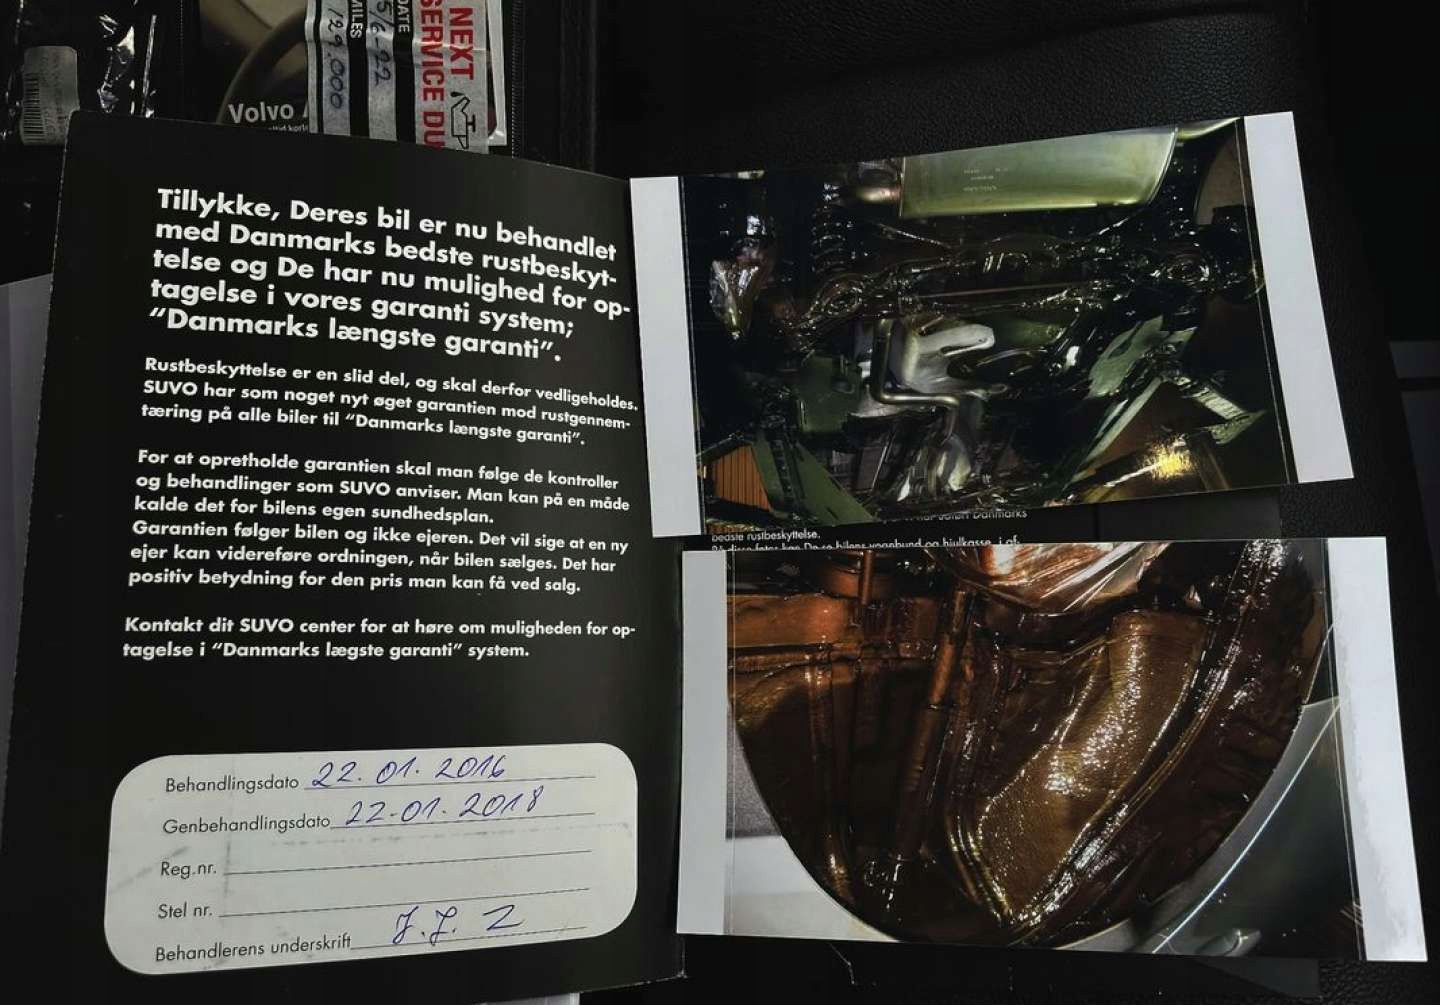 NEXT
SERVICE DU
DATE
5/6-22
MILES
129,000
Volvo
Tillykke, Deres bil er nu behandlet
med Danmarks bedste rustbeskyt-
telse og De har nu mulighed for op-
tagelse i vores garanti system;
“Danmarks længste garanti”.
Rustbeskyttelse er en slid del, og skal derfor vedligeholdes.
SUVO har som noget nyt øget garantien mod rustgennem-
tæring på alle biler til “Danmarks længste garanti”.
For at opretholde garantien skal man følge de kontroller
og behandlinger som SUVO anviser. Man kan på en måde
kalde det for bilens egen sundhedsplan.
Garantien følger bilen og ikke ejeren. Det vil sige at en ny
ejer kan videreføre ordningen, når bilen sælges. Det har
positiv betydning for den pris man kan få ved salg.
Kontakt dit SUVO center for at høre om muligheden for op-
tagelse i “Danmarks lægste garanti” system.
Behandlingsdato 22.01.2016
Genbehandlingsdato 22.01.2018
Reg.nr.
Stel nr.
Behandlerens underskrift
Danmarks
bedste rustbeskyttelse.
På disse fotos kan De se bilens vognbund og hjulkasse, i af